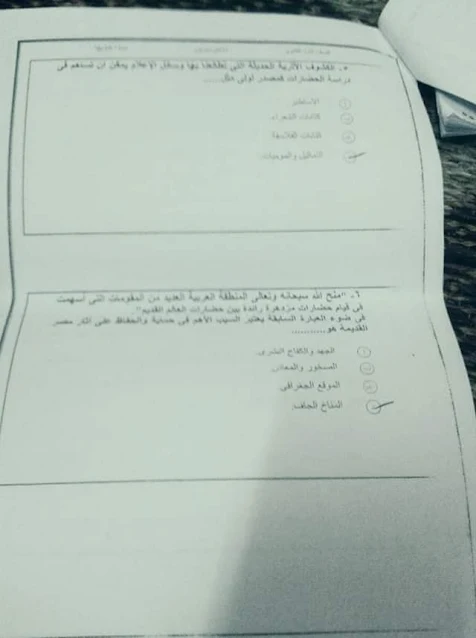 ٥- الكشوف الأثرية الحديثة التي تطالعنا بها وسائل الإعلام يمكن أن تسهم في
دراسة الحضارات كمصدر أولي مثل.....
الأساطير
كتابات الشعراء
كتابات الفلاسفة
التماثيل والموميات
٦- "منح الله سبحانه وتعالى المنطقة العربية العديد من المقومات التي أسهمت
في قيام حضارات مزدهرة رائدة بين حضارات العالم القديم"
في ضوء العبارة السابقة يعتبر السبب الأهم في حماية والحفاظ على آثار مصر
القديمة هو...........
الجهد والكفاح البشري
الصخور والمعادن
الموقع الجغرافي
المناخ الجاف